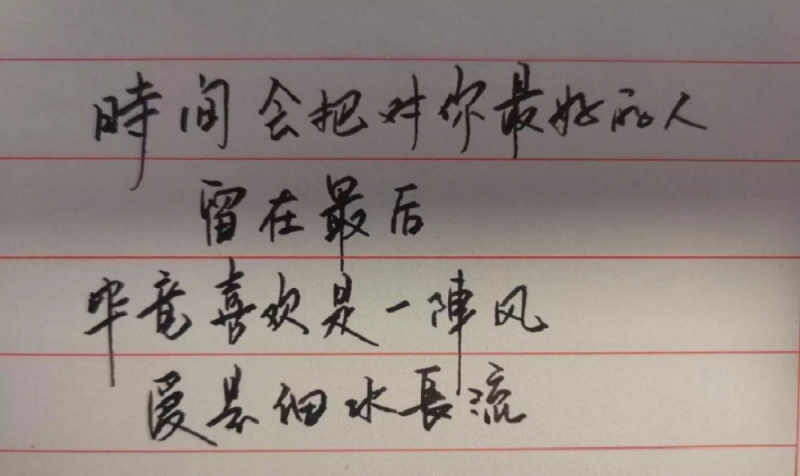 時间会把对你最好的人
留在最后
毕竟喜欢是一陣风
爱是细水長流